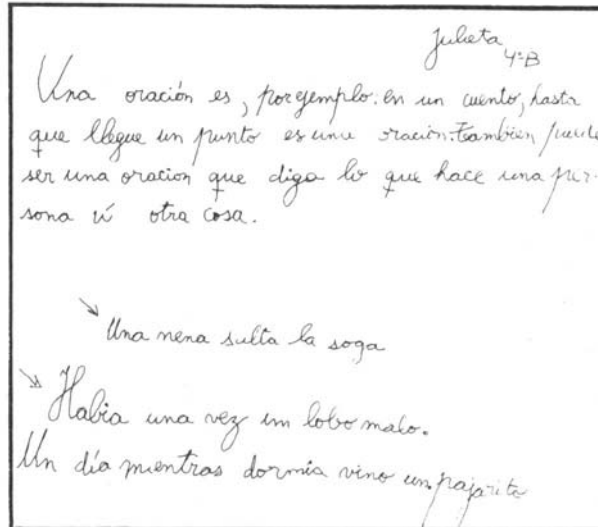 Julieta
4º B
Una oración es, por ejemplo: en un cuento, hasta
que llegue un punto es una oración. también puede
ser una oracion que diga lo que hace una per-
sona ú otra cosa.
Una nena salta la soga
Habia una vez un lobo malo.
Un día mientras dormia vino un pajarito